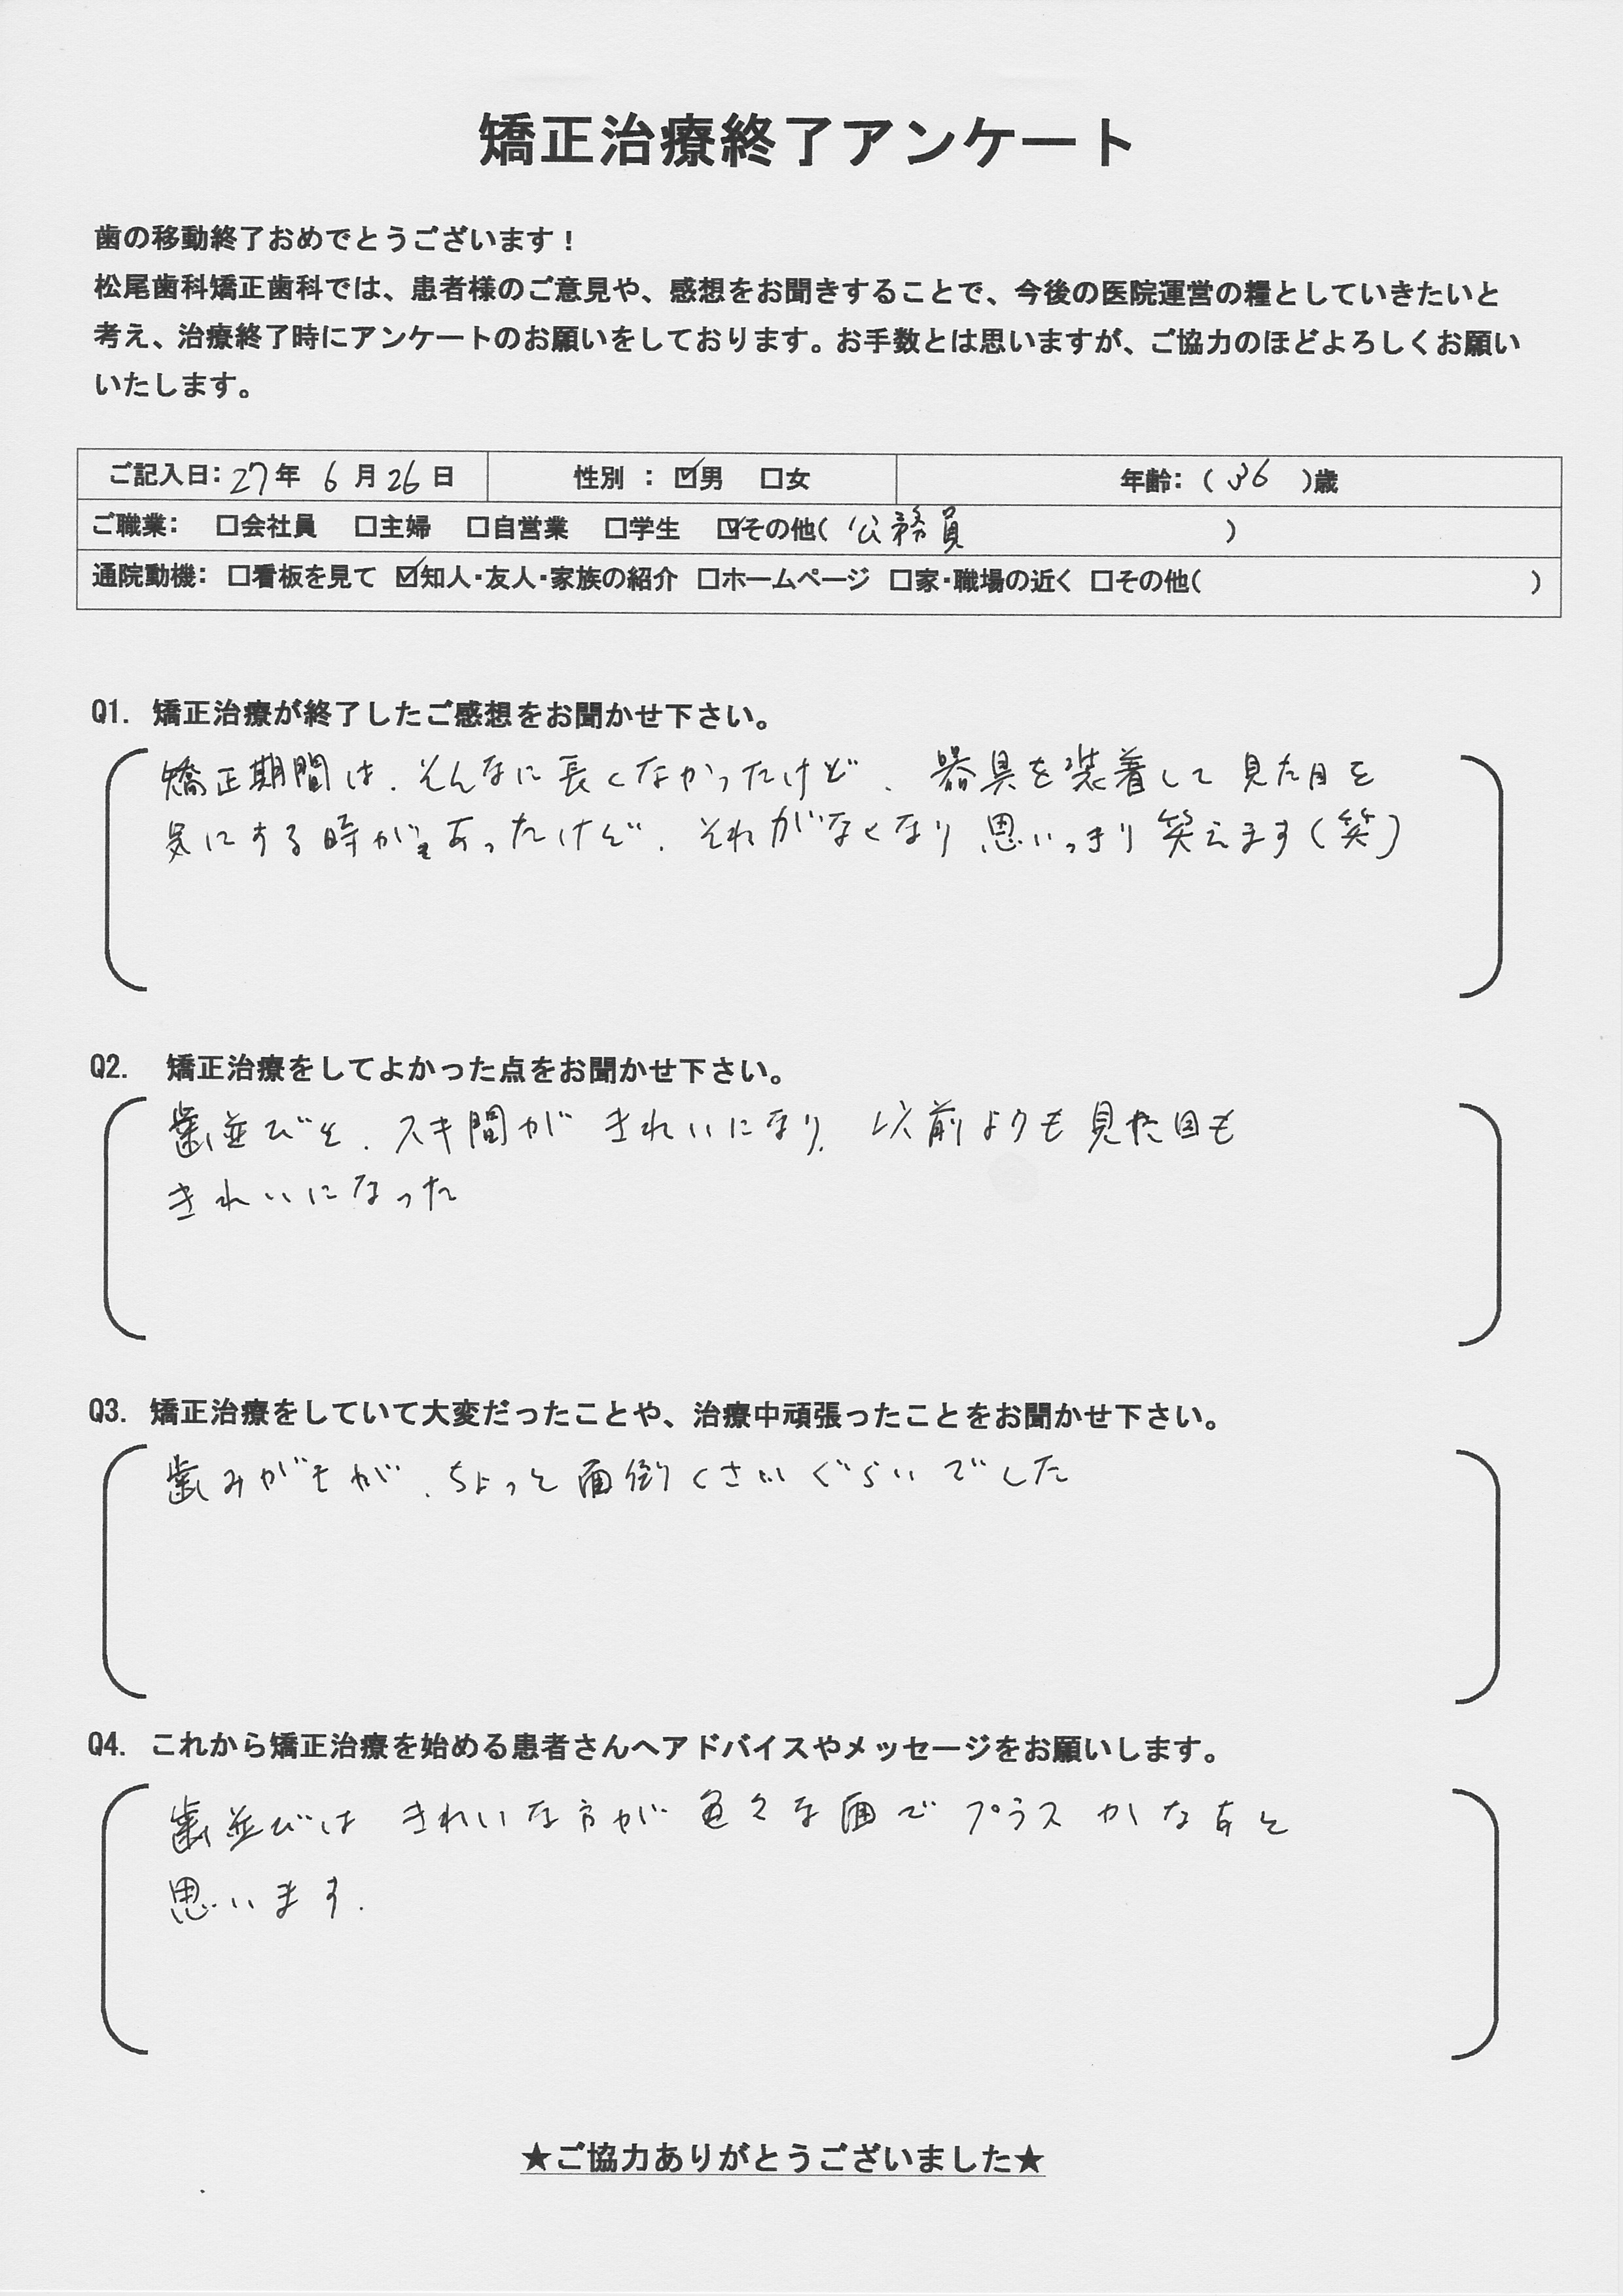 矯正治療終了アンケート
歯の移動終了おめでとうございます！
松尾歯科矯正歯科では、患者様のご意見や、感想をお聞きすることで、今後の医院運営の糧としていきたいと
考え、治療終了時にアンケートのお願いをしております。お手数とは思いますが、ご協力のほどよろしくお願い
いたします。
ご記入日：27年 6月26日 性別：☑男 □女 年齢：（36）歳
ご職業： □会社員 □主婦 □自営業 □学生 ☑その他（公務員 ）
通院動機：□看板を見て ☑知人・友人・家族の紹介 □ホームページ □家・職場の近く □その他（ ）
Q1. 矯正治療が終了したご感想をお聞かせ下さい。
矯正期間は、そんなに長くなかったけど、器具を装着して見た目を
気にする時があったけど、それがなくなり思いっきり笑えます（笑）
Q2. 矯正治療をしてよかった点をお聞かせ下さい。
歯並びと、スキ間がきれいになり、以前よりも見た目も
きれいになった
Q3. 矯正治療をしていて大変だったことや、治療中頑張ったことをお聞かせ下さい。
歯みがきが、ちょっと面倒くさいぐらいでした
Q4. これから矯正治療を始める患者さんへアドバイスやメッセージをお願いします。
歯並びはきれいな方が色々な面でプラスかなあと
思います.
★ご協力ありがとうございました★